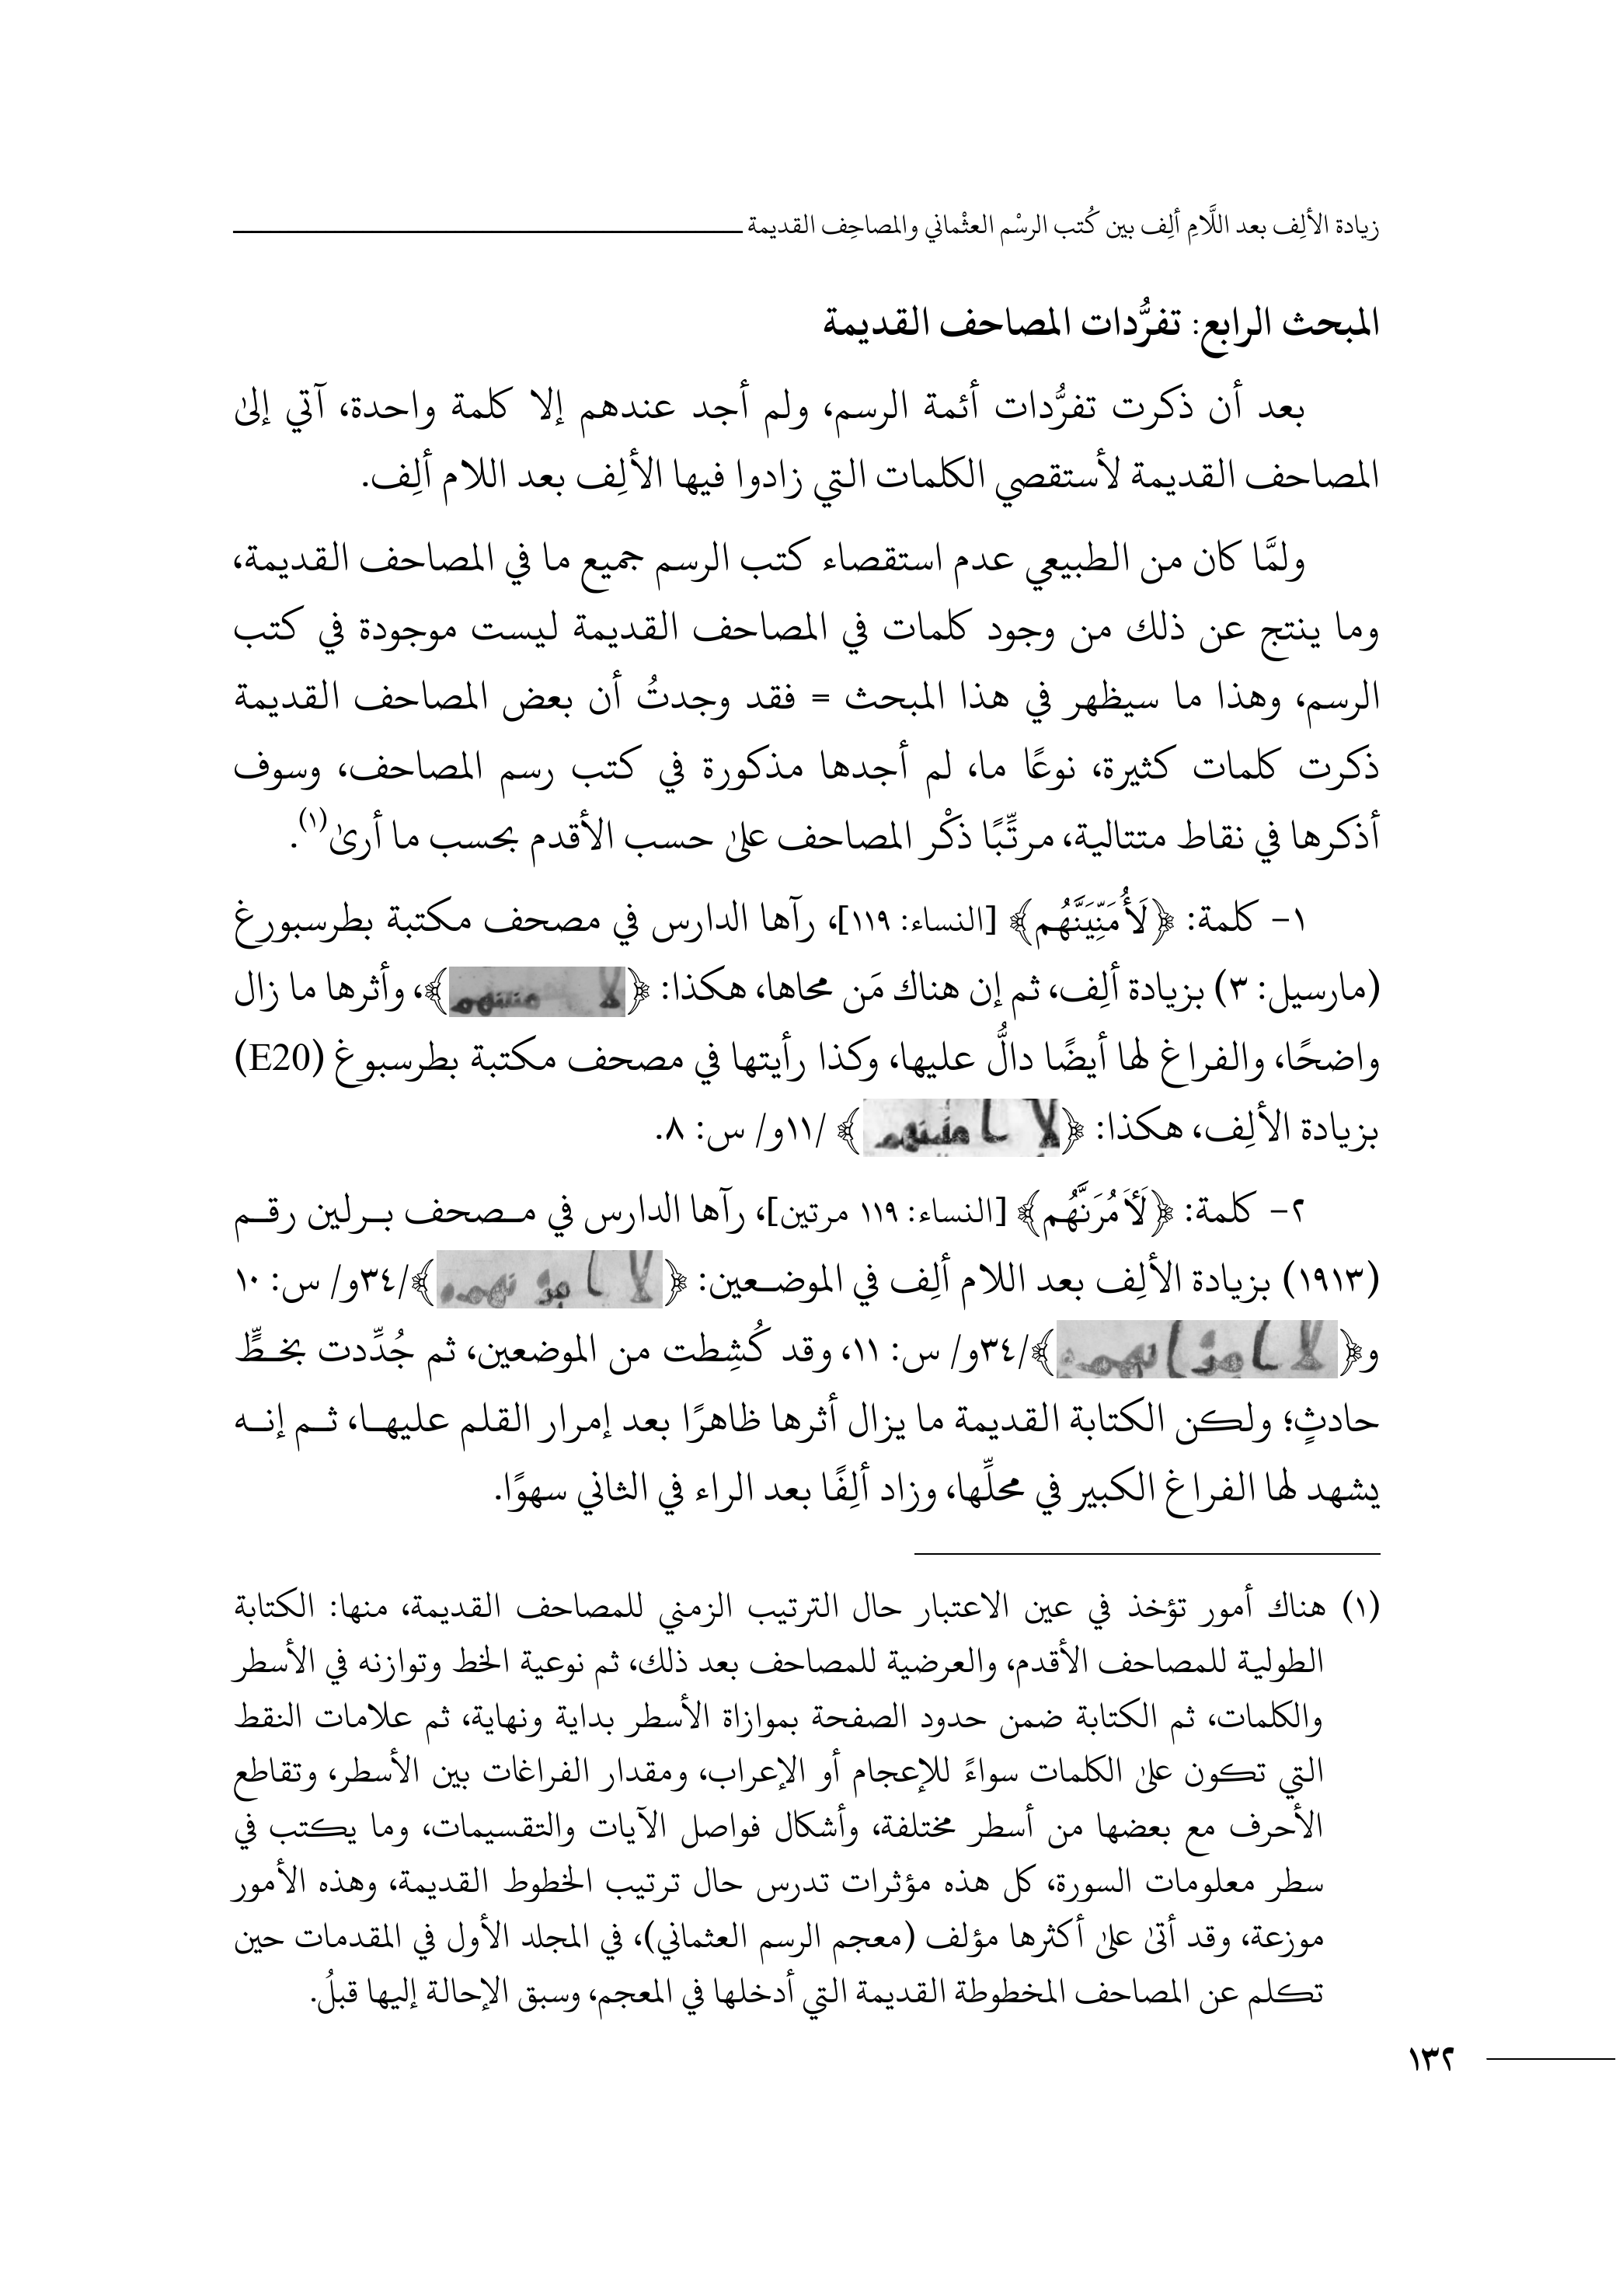 زيادة الألِف بعد اللَّامِ ألِف بين كُتب الرسْم العثْماني والمصاحِف القديمة
المبحث الرابع: تفرُّدات المصاحف القديمة
بعد أن ذكرت تفرُّدات أئمة الرسم، ولم أجد عندهم إلا كلمة واحدة، آتي إلىٰ
المصاحف القديمة لأستقصي الكلمات التي زادوا فيها الألِف بعد اللام ألِف.
ولمَّا كان من الطبيعي عدم استقصاء كتب الرسم جميع ما في المصاحف القديمة،
وما ينتج عن ذلك من وجود كلمات في المصاحف القديمة ليست موجودة في كتب
الرسم، وهذا ما سيظهر في هذا المبحث = فقد وجدتُ أن بعض المصاحف القديمة
ذكرت كلمات كثيرة، نوعًا ما، لم أجدها مذكورة في كتب رسم المصاحف، وسوف
أذكرها في نقاط متتالية، مرتِّبًا ذكْر المصاحف علىٰ حسب الأقدم بحسب ما أرىٰ(١).
١- كلمة: ﴿لَأُمَنِّيَنَّهُم﴾ [النساء: ١١٩]، رآها الدارس في مصحف مكتبة بطرسبورغ
(مارسيل: ٣) بزيادة ألِف، ثم إن هناك مَن محاها، هكذا: ﴿لا منينهم﴾، وأثرها ما زال
واضحًا، والفراغ لها أيضًا دالُّ عليها، وكذا رأيتها في مصحف مكتبة بطرسبوغ (E20)
بزيادة الألِف، هكذا: ﴿لا امنينهم﴾ /١١و/ س: ٨.
٢- كلمة: ﴿لَأَمُرَنَّهُم﴾ [النساء: ١١٩ مرتين]، رآها الدارس في مصحف برلين رقم
(١٩١٣) بزيادة الألِف بعد اللام ألِف في الموضعين: ﴿لا امر نهم﴾/٣٤و/ س: ١٠
و﴿لا امرانهم﴾/٣٤و/ س: ١١، وقد كُشِطت من الموضعين، ثم جُدِّدت بخطٍّ
حادثٍ؛ ولكن الكتابة القديمة ما يزال أثرها ظاهرًا بعد إمرار القلم عليها، ثم إنه
يشهد لها الفراغ الكبير في محلِّها، وزاد ألِفًا بعد الراء في الثاني سهوًا.
(١) هناك أمور تؤخذ في عين الاعتبار حال الترتيب الزمني للمصاحف القديمة، منها: الكتابة
الطولية للمصاحف الأقدم، والعرضية للمصاحف بعد ذلك، ثم نوعية الخط وتوازنه في الأسطر
والكلمات، ثم الكتابة ضمن حدود الصفحة بموازاة الأسطر بداية ونهاية، ثم علامات النقط
التي تكون علىٰ الكلمات سواءً للإعجام أو الإعراب، ومقدار الفراغات بين الأسطر، وتقاطع
الأحرف مع بعضها من أسطر مختلفة، وأشكال فواصل الآيات والتقسيمات، وما يكتب في
سطر معلومات السورة، كل هذه مؤثرات تدرس حال ترتيب الخطوط القديمة، وهذه الأمور
موزعة، وقد أتىٰ علىٰ أكثرها مؤلف (معجم الرسم العثماني)، في المجلد الأول في المقدمات حين
تكلم عن المصاحف المخطوطة القديمة التي أدخلها في المعجم، وسبق الإحالة إليها قبلُ.
١٣٢